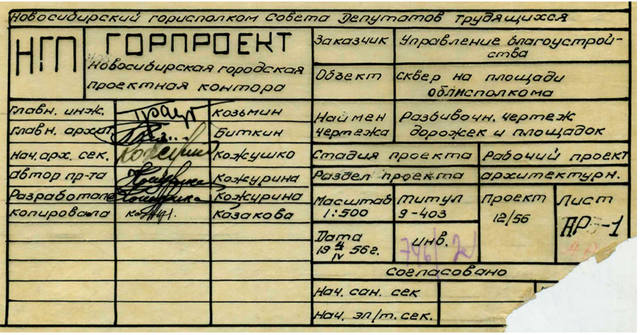 Новосибирский горисполком Совета Депутатов трудящихся
НГП
ГОРПРОЕКТ
Новосибирская городская
проектная контора
Главн. инж. Козьмин
Главн. архит. Биткин
Нач. арх. сек. Кожушко
автор пр-та Кожурина
Разработала Кожурина
Копировала Казакова
Заказчик Управление благоустрой-
ства
Объект Сквер на площади
облисполкома
Наимен
чертежа
Разбивочн. чертеж
дорожек и площадок
Стадия проекта Рабочий проект
Раздел проекта архитектурн.
Масштаб
1:500
Титул
9-403
Проект
12/56
Лист
АР-1
Дата
19 4/IV 56г.
инв.
Согласовано
Нач. сан. сек
Нач. эл/т. сек.